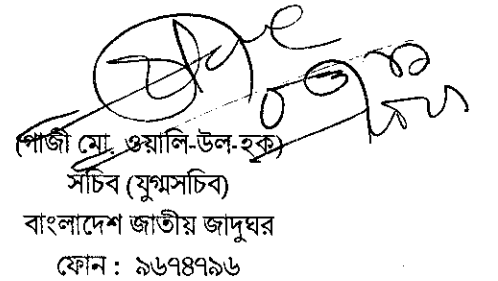 (গাজী মো. ওয়ালি-উল-হক)
সচিব (যুগ্মসচিব)
বাংলাদেশ জাতীয় জাদুঘর
ফোন : ৯৬৭৪৭৯৬